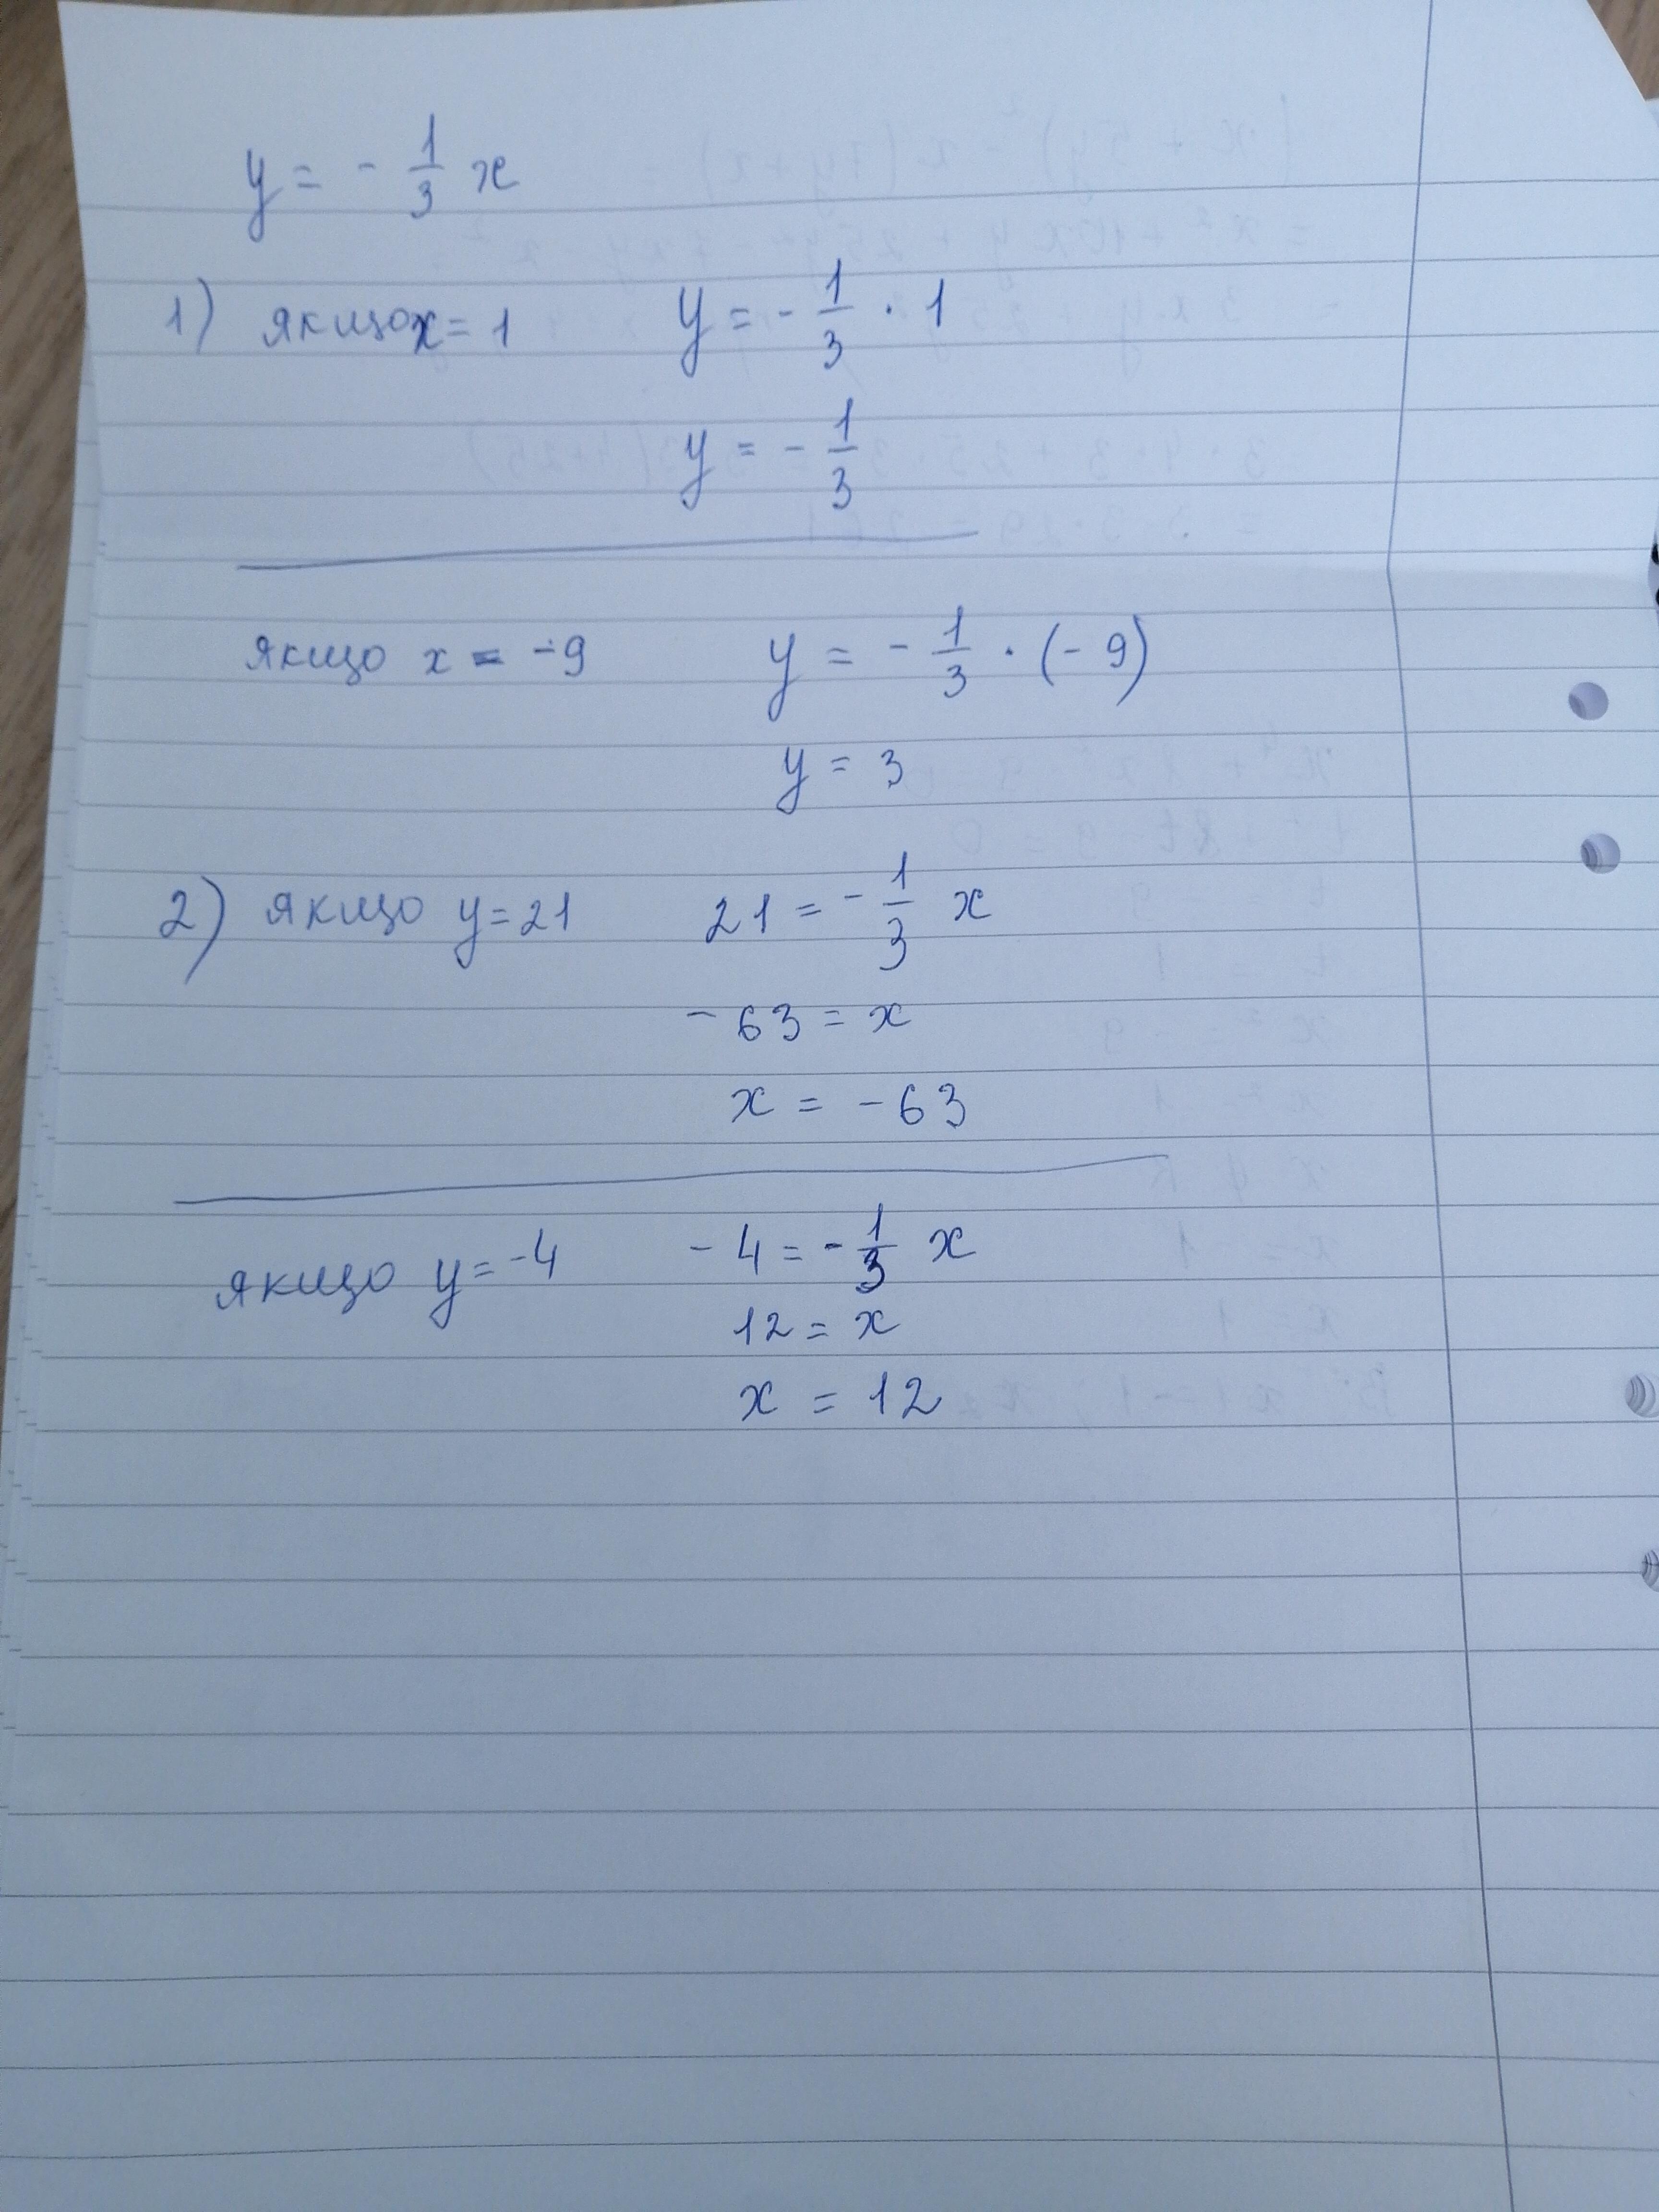 y = - 1/3 x
1) якщо x = 1 y = - 1/3 · 1
y = - 1/3
якщо x = -9 y = - 1/3 · (-9)
y = 3
2) якщо y = 21 21 = - 1/3 x
-63 = x
x = -63
якщо y = -4 -4 = - 1/3 x
12 = x
x = 12